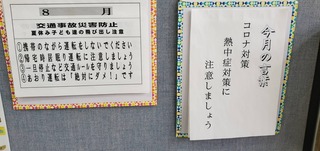 8 月
交通事故災害防止
夏休み子ども達の飛び出し注意
①携帯のながら運転をしないでください
②帰宅時居眠り運転に注意しましょう
③一旦停止など交通ルールを守りましょう
④あおり運転は「絶対にダメ！」です
今月の言葉
コロナ対策
熱中症対策に
注意しましょう